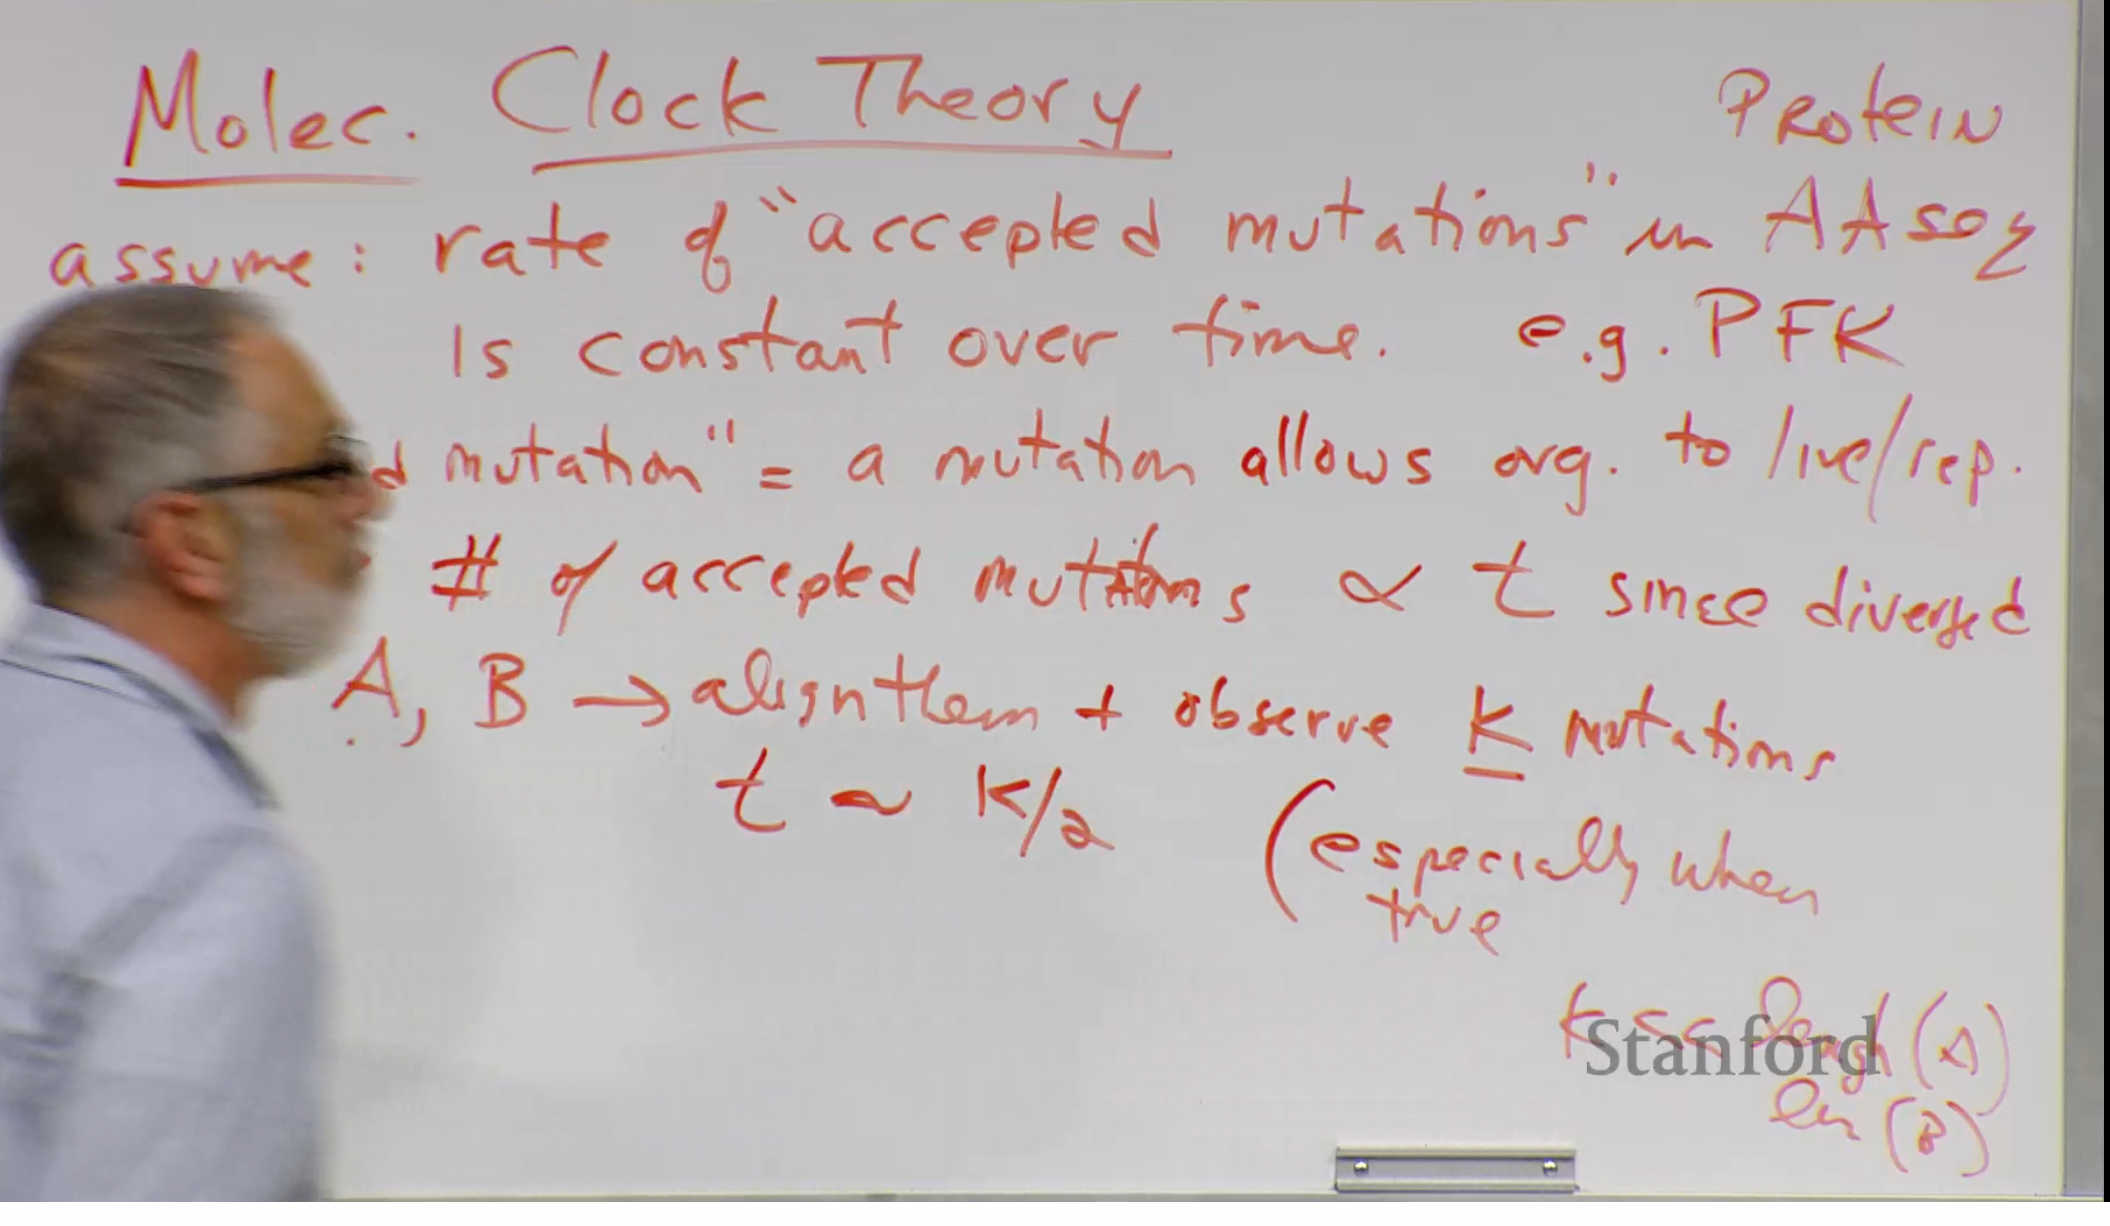 Molec. Clock Theory
Protein
assume: rate of "accepted mutations" in AA seq
is constant over time. e.g. PFK
d mutation" = a mutation allows org. to live/rep.
# of accepted mutations ∝ t since diverged
A, B → align them + observe K mutations
t ~ K/2 (especially when
true
K << length (A)
len (B)
Stanford